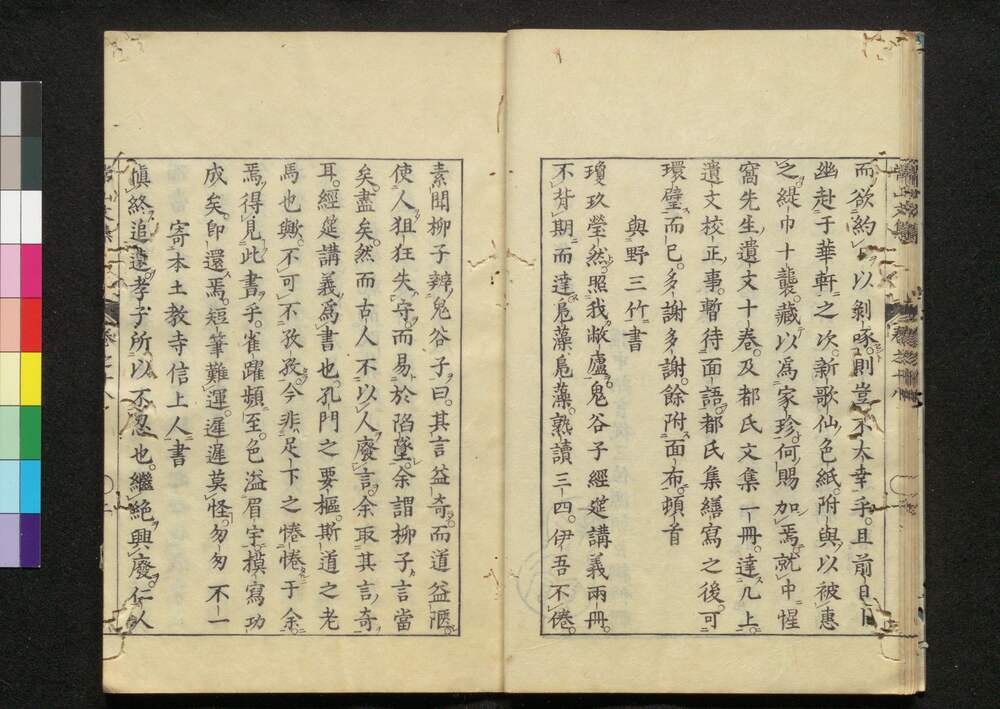 而欲約以剝啄則豈不太幸乎。且前日
幽赴于華軒之次。新歌仙色紙。附與以被惠
之。緹巾十襲。藏以爲家珍。何賜加焉。就中惺
窩先生遺文十卷。及都氏文集一冊。達几上。
遺文校正事暫待面語。都氏集繕寫之後。可
環璧而已。多謝多謝。餘附面布。頓首
與野三竹書
瓊玖瑩然。照我敝廬。鬼谷子經筵講義兩冊。
不背期而達。扈藻扈藻。熟讀三四。伊吾不倦。
素聞柳子辨鬼谷子曰。其言益奇。而道益陿。
使人狙狂失守。而易於陷墬。余謂柳子言當
矣。盡矣。然而古人不以人廢言。余取其言奇
耳。經筵講義爲書也。孔門之要樞。斯道之老
馬也歟。不可不孜孜。今非足下之惓惓于余。
焉得見此書乎。雀躍頻至。色溢眉宇。模寫功
成矣。卽還焉。短筆難運。遲遲莫怪。匆匆不一
寄本土教寺信上人書
愼終追遠。孝子所以不忍也。繼絕興廢。仁人